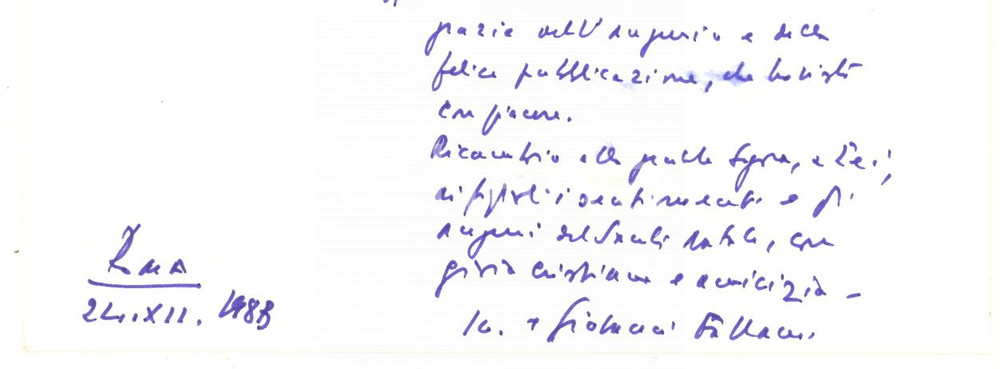 grazie dell'augurio e della
felice pubblicazione, che ho visto
con piacere.
Ricambio alla gentile Signora, e a Lei,
ai figlioli i sentimenti e gli
auguri del Santo Natale, con
gioia cristiana e amicizia -
+ Giovanni Fallani.
Roma
24.XII.1983